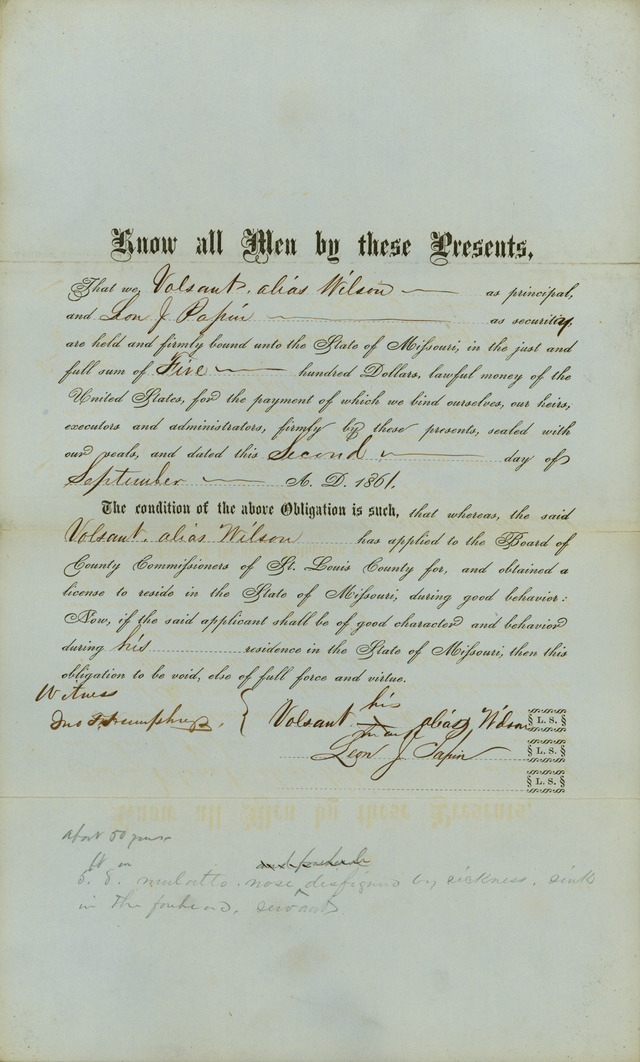 Know all Men by these Presents,
That we, Volsant. alias Wilson as principal,
and Leon J Papin as security,
are held and firmly bound unto the State of Missouri, in the just and
full sum of Five hundred Dollars, lawful money of the
United States, for the payment of which we bind ourselves, our heirs,
executors and administrators, firmly by these presents, sealed with
our seals, and dated this Second day of
September A. D. 1861.
The condition of the above Obligation is such, that whereas, the said
Volsant. alias Wilson has applied to the Board of
County Commissioners of St. Louis County for, and obtained a
license to reside in the State of Missouri, during good behavior:
Now, if the said applicant shall be of good character and behavior
during his residence in the State of Missouri, then this
obligation to be void, else of full force and virtue.
Witness
his
Volsant alias Wilson L. S.
mark
Leon J. Papin L. S.
L. S.
About 50 years
ft in
5. 8. mulatto. nose disfigured by sickness. sink
in the forehead. servant